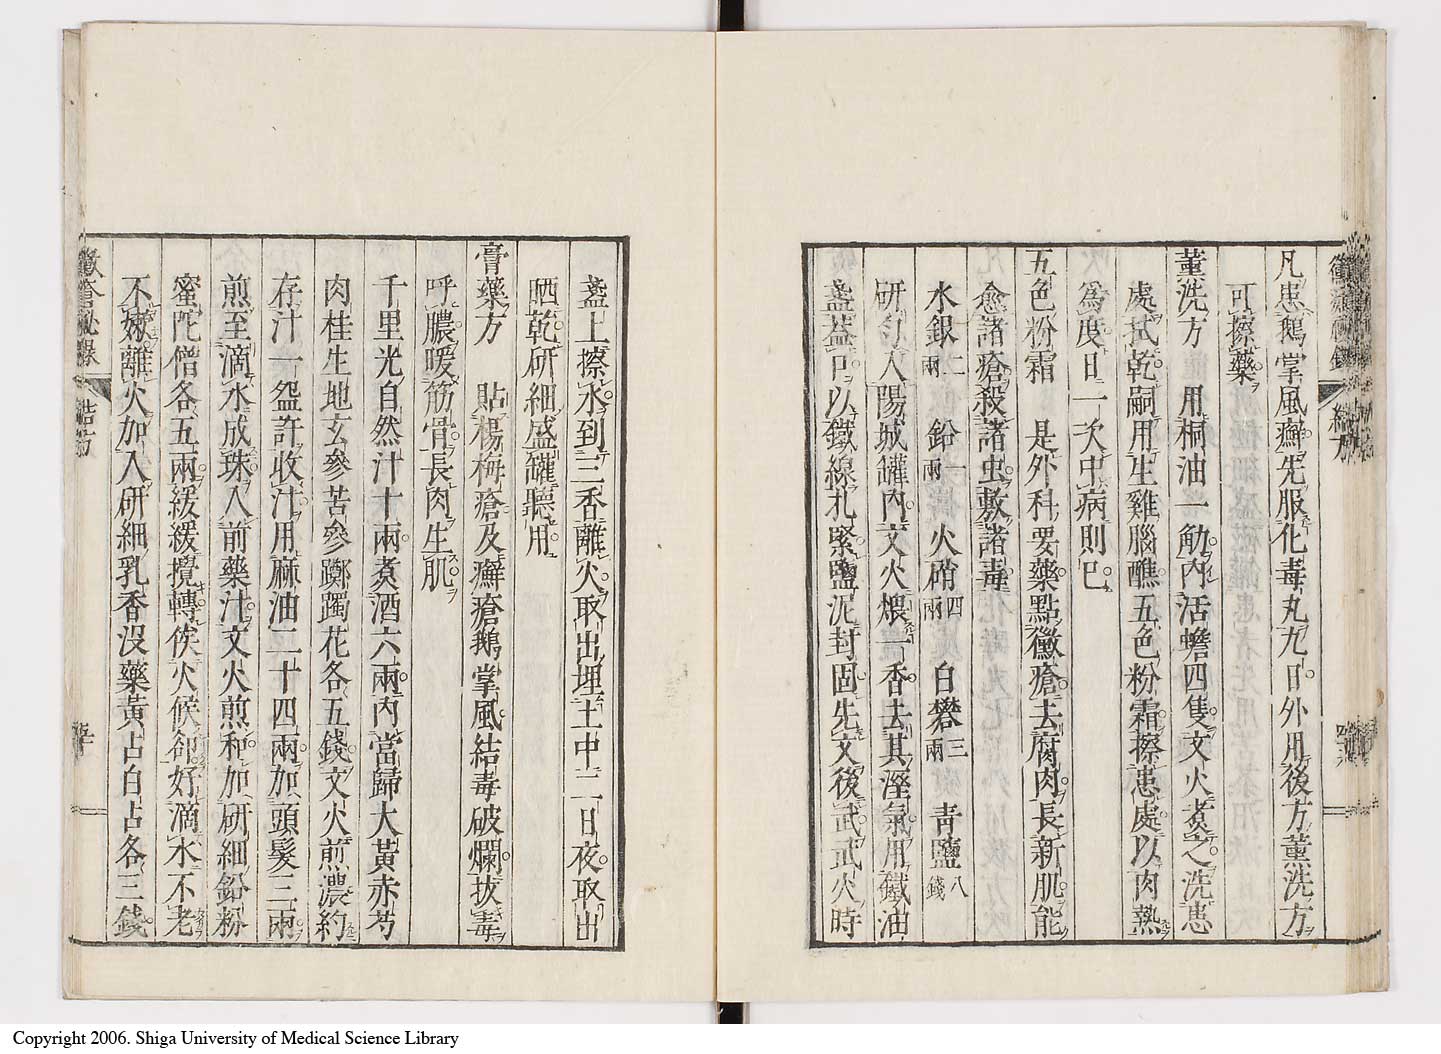 凡患鵝掌風癬先服化毒丸九日外用後方薰洗方
可擦藥
薰洗方 用桐油一觔內活蟾四隻文火煮之洗患
處拭乾嗣用生雞腦醮五色粉霜擦患處以肉熱
爲度日一次中病則已
五色粉霜 是外科要藥點黴瘡去腐肉長新肌能
愈諸瘡殺諸虫敷諸毒
水銀二兩 鉛一兩 火硝四兩 白礬三兩 青鹽八錢
研勻入陽城罐內文火煨一香去其溼氣用鐵油
盞蓋口以鐵線扎緊鹽泥封固先文後武武火時
盞上擦水到三香離火取出埋土中二日夜取出
晒乾研細盛罐聽用
膏藥方 貼楊梅瘡及癬瘡鵝掌風結毒破爛拔毒
呼膿暖筋骨長肉生肌
千里光自然汁十兩煮酒六兩內當歸大黃赤芍
肉桂生地玄參苦參躑躅花各五錢文火煎濃約
存汁一盌許收汁用麻油二十四兩加頭髮三兩
煎至滴水成珠入前藥汁文火煎和加研細鉛粉
蜜陀僧各五兩緩緩攪轉俟火候卻好滴水不老
不嫩離火加入研細乳香沒藥黃占白占各三錢
黴瘡秘錄
Copyright 2006. Shiga University of Medical Science Library